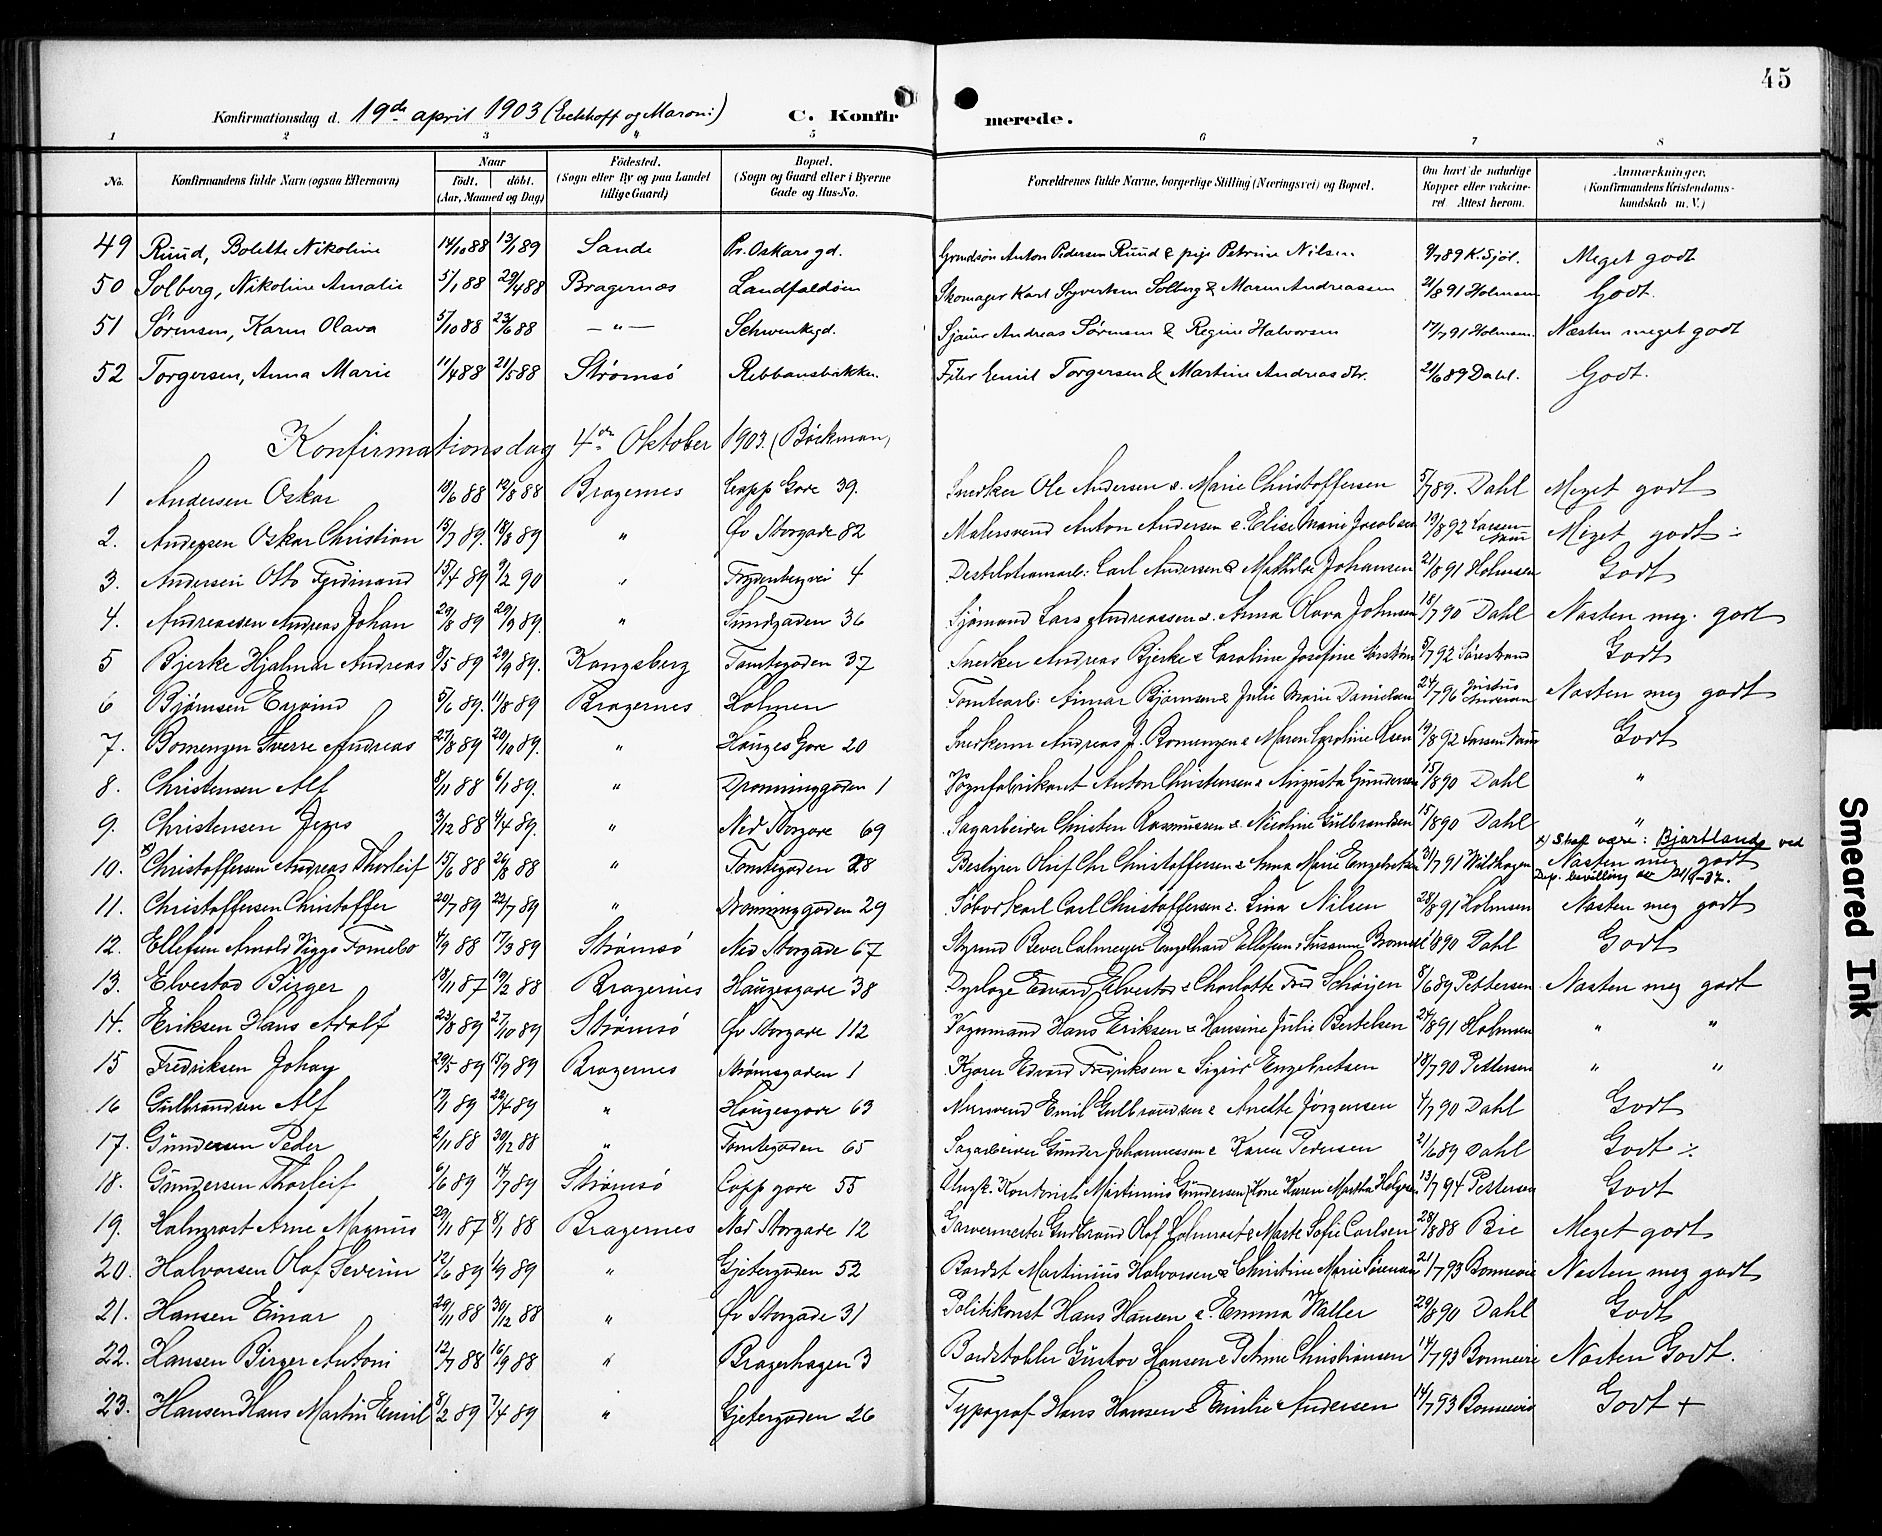 45
Konfirmationsdag d. 19de april 1903 (Eckhoff og Maroni) C. Konfirmerede.
1 2 3 4 5 6 7 8
No. Konfirmandens fulde Navn (ogsaa Efternavn) Naar Födt. döbt. (Aar, Maaned og Dag) Födested. (Sogn eller By og paa Landet tillige Gaard) Bopæl. (Sogn og Gaard eller i Byerne Gade og Hus-No. Forældrenes fulde Navne, borgerlige Stilling (Næringsvei) og Bopæl. Om havt de naturlige Kopper eller vaccineret Attest herom. Anmærkninger, (Konfirmandens Kristendomskundskab m. V.)
49 Ruud, Bolette Nikoline 14/10 88 13/1 89 Sande Pr. Oskars gd. Anton Pedersen Ruud & pige Petrine Nilsen 9/7 89 K. Sjöl. Meget godt
50 Solberg, Nikoline Amalie 5/1 88 29/4 88 Bragernæs Landfaldöen Skomager Karl Syvertsen Solberg & Maren Andreassen 21/8 91 Holmsen Godt.
51 Sørensen, Karen Olava 5/10 88 23/6 88 — " — Schwenkegd. Sjauer Andreas Sørensen & Regine Halvorsen 17/7 91 Holmsen. Næsten meget godt
52 Torgersen, Anna Marie 11/4 88 21/5 88 Strømsö Ribbansbakken. Filer Emil Torgersen & Martine Andreasdtr. 21/6 89 Dahl. Godt.
Konfirmationsdag 4de Oktober 1903. (Böckman)
1 Andersen Oskar 10/6 88 12/8 88 Bragernes Capp Gare 39. Snedker Ole Andersen o. Marie Christoffersen 5/7 89. Dahl Meget godt
2. Andersen Oskar Christian 15/7 89. 18/8 89 " Øv Storgade 82 Malersvend Anton Andersen o. Elise Marie Jacobsen 19/8 92 Larsen Meget godt ÷
3. Andersen Otto Ferdinand 15/4 89 9/2 90 " Frydenbergvei 4 Destilationsarb: Carl Andersen & Mathilde Johansen 21/8 91 Holmsen Godt
4. Andreassen Andreas Johan 29/8 89 29/9 89. " Sundgaden 36 Sjømand Lars Andreassen o. Anna Olava Johnsen 18/7 90 Dahl Næsten meg. godt
5 Bjerke Hjalmar Andreas 8/5 89 29/9 89. Kongsberg Tomtegaden 37 Snedker Andreas Bjerke & Caroline Josefine 5/7 92 Sörestrand Godt
6 Bjørnsen Eyvind 5/6 89. 11/8 89 Bragernes Holmen Tomtearb: Ajmar Bjørnsen & Julie Marie Danielsen 24/7 96 Næsten meg godt
7. Bomengen Sverre Andreas 27/8 89 20/10 89. " Hauges Gare 20 Snedkerm Andreas J. Bomengen & Maren Caroline 19/8 92 Larsen Godt
8. Christensen Alf 8/11 88 6/1 89. " Dronninggaden 1 Vognfabrikant Anton Christensen & Augusta Gundersen 15/8 90 Dahl "
9. Christensen Jens 3/12 88 4/4 89. " Ned Storgare 69 Sagarbeider Christen Rasmussen & Nicoline Gulbrandsen 15/8 90 Dahl "
x) Skal være: Bjartland ved
10. x) Christoffersen Andreas Thorleif 15/6 88 26/8 88 " Tomtegaden 28 Bestyrer Olof Chr Christoffersen & Anna Marie Engebretsen 31/7 91 Næsten meg godt
Dep. bevilling av 21/9-32.
11. Christoffersen Christoffer 20/7 89 22/7 89 " Dronninggaden 29 Carl Christoffersen & Lina Nilsen 28/8 91 Holmsen Næsten meg godt
12. Ellefsen Arnold Viggo Tornebo 4/9 88 17/3 89 Strømsö Ned Storgade 67 Styrmd Bever Calmeyer Engelhard Ellefsen & Susanne 90 Dahl Godt
13. Elvestad Birger 18/11 87 19/2 88 Bragernes Haugesgare 38 Dyrlæge Edvard Elvestad & Charlotte Fred. Schøyen 8/6 89 Pettersen Næsten meg godt
14. Eriksen Hans Adolf 23/8 89 27/10 89 Strømsö Øv Storgare 112 Vognmand Hans Eriksen & Hansine Julie Bertelsen 24/8 91 Holmsen " "
15 Fredriksen Johan 29/5 89 15/9 89 Bragernes Strømsgaden 1 Kjører Edvard Fredriksen & Sigrid Engebretsen 18/7 90 Pettersen " "
16 Gulbrandsen Alf 17/1 89 22/4 89 " Haugesgare 63 Mursvend Emil Gulbrandsen & Anette Jörgensen 4/7 90 Dahl Godt
17. Gundersen Peder 2/11 88 30/12 88 " Tomtegaden 65 Sagarbeider Gunder Johannessen & Karen Pedersen 21/6 89 Dahl Godt ÷
18. Gundersen Thorleif 6/6 89 14/7 89 Strømsö Capp gare 55 Kontorist Martinius Gundersen, Kone Karen Martha 13/7 94 Pettersen Godt
19. Holmqvst Arne Magnus 29/11 87 8/1 88 Bragernes Ned Storgare 12 Garvermester Gudbrand Olaf Holmqvst & Marte Sofie Carlsen 28/8 88 Bie Meget godt
20. Halvorsen Olaf Severin 12/6 89 1/9 89 " Gjetergaden 52 Bardst Martinius Halvorsen & Christine Marie Sørensen 21/7 93 Bonnevie Næsten meg godt
21. Hansen Einar 29/11 88 30/12 88 " Øv Storgade 31 Politikonst Hans Hansen & Emma Waller 29/8 90 Dahl Godt
22. Hansen Birger Antoni 12/7 88 16/9 88 " Bragerhagen 3 Gustav Hansen & Petrine Christiansen 14/7 93 Bonnevie Næsten Godt.
23. Hansen Hans Martin Emil 8/2 89 7/4 89 " Gjetergaden 26 Typograf Hans Hansen & Emilie Andersen 14/7 93 Bonnevie Godt +
Smeared Ink